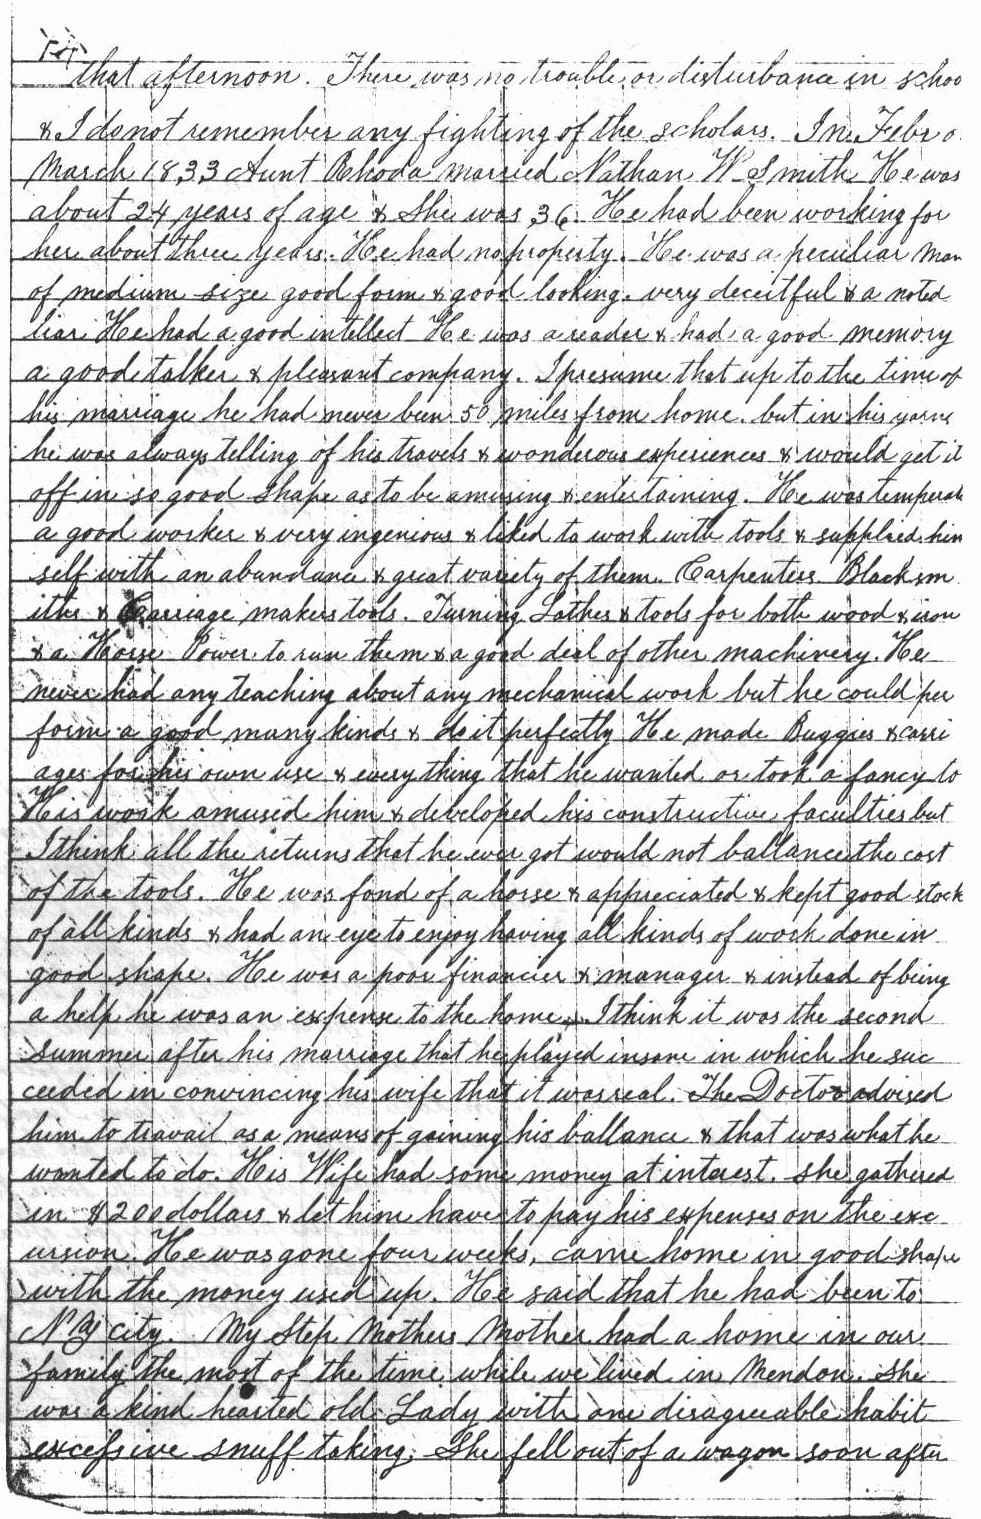 that afternoon. There was no trouble or disturbance in schoo
& I do not remember any fighting of the scholars. In Febr o
March 1833 Aunt Rhoda married Nathan W Smith He was
about 24 years of age & She was 36. He had been working for
her about three years. He had no property. He was a peculiar man
of medium size good form & good looking. very deceitful & a noted
liar He had a good intellect He was a reader & had a good memory
a good talker & pleasant company. I presume that up to the time of
his marriage he had never been 50 miles from home. but in his yarns
he was always telling of his travels & wonderous experiences & would get it
off in so good shape as to be amusing & entertaining. He was temperate
a good worker & very ingenious & liked to work with tools & supplied him
self with an abundance & great variety of them. Carpenters Blacksm
iths & Carriage makers tools. Turning Lathes & tools for both wood & iron
& a Horse Power to run them & a good deal of other machinery. He
never had any teaching about any mechanical work but he could per
form a good many kinds & do it perfectly He made Buggies & carri
ages for his own use & every thing that he wanted or took a fancy to
His work amused him & developed his constructive faculties but
I think all the returns that he ever got would not ballance the cost
of the tools. He was fond of a horse & appreciated & kept good stock
of all kinds & had an eye to enjoy having all kinds of work done in
good shape. He was a poor financier & manager & instead of being
a help he was an expense to the home. I think it was the second
summer after his marriage that he played insane in which he suc
ceeded in convincing his wife that it was real. The Doctor advised
him to travail as a means of gaining his ballance & that was what he
wanted to do. His Wife had some money at interest. she gathered
in $200 dollars & let him have to pay his expenses on the exc
ursion. He was gone four weeks, came home in good shape
with the money used up. He said that he had been to
N.Y city. My Step Mothers Mother had a home in our
family the most of the time while we lived in Mendon. She
was a kind hearted old Lady with one disagreeable habit
excessive snuff taking. She fell out of a wagon soon after